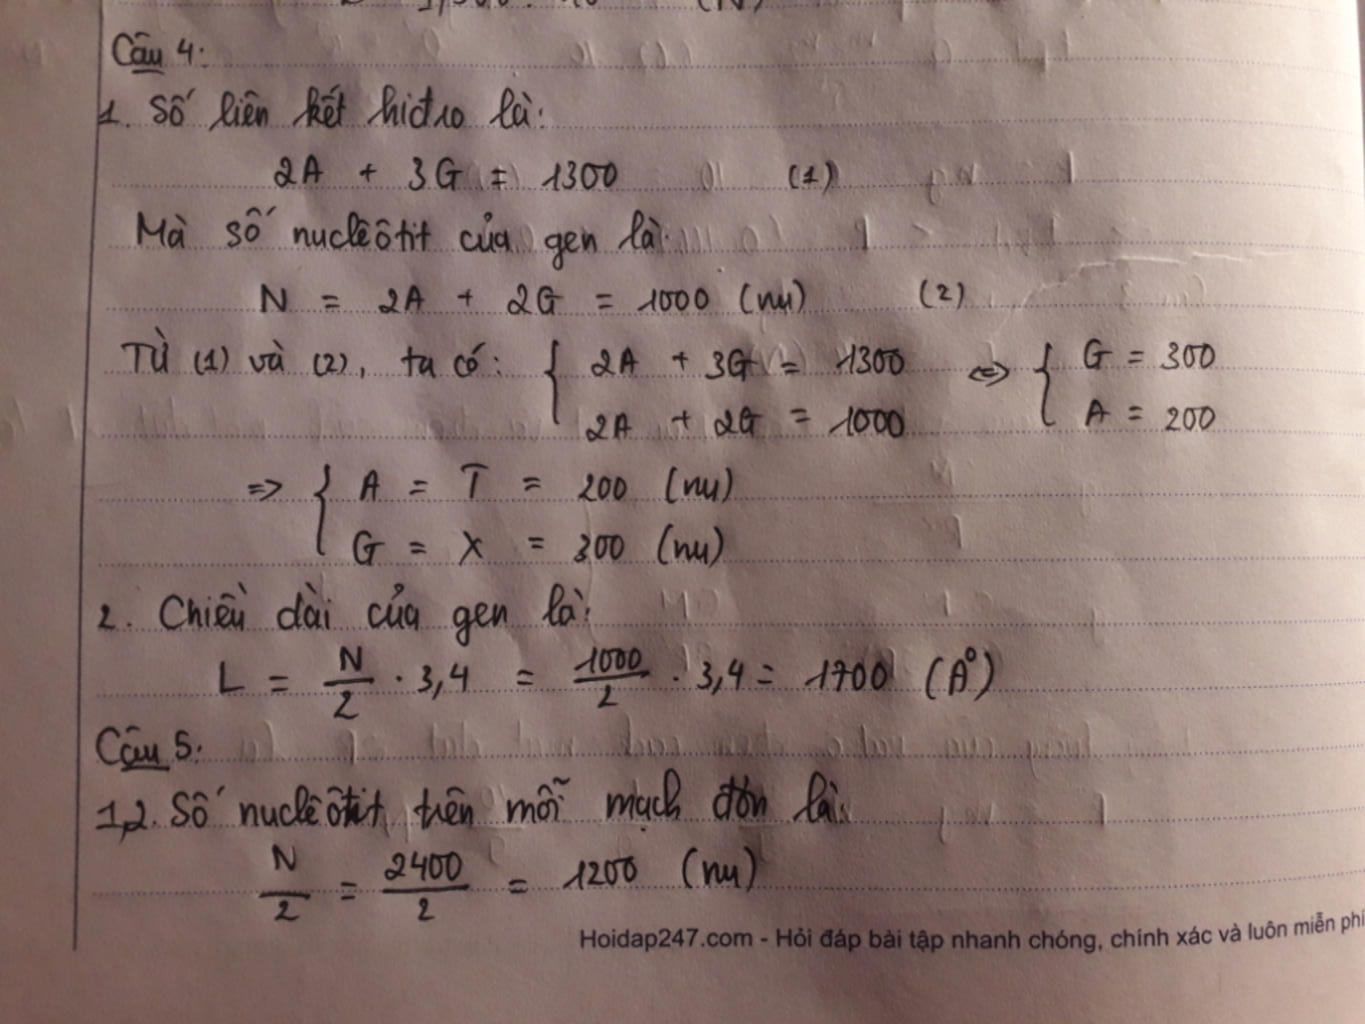 Câu 4:
1. Số liên kết hiđro là:
2A + 3G = 1300 (1)
Mà số nuclêôtit của gen là:
N = 2A + 2G = 1000 (nu) (2)
Từ (1) và (2), ta có: { 2A + 3G = 1300 <=> { G = 300
2A + 2G = 1000 A = 200
=> { A = T = 200 (nu)
G = X = 300 (nu)
2. Chiều dài của gen là:
L = N/2 . 3,4 = 1000/2 . 3,4 = 1700 (A⁰)
Câu 5:
1,2. Số nuclêôtit trên mỗi mạch đơn là:
N/2 = 2400/2 = 1200 (nu)
Hoidap247.com - Hỏi đáp bài tập nhanh chóng, chính xác và luôn miễn phí